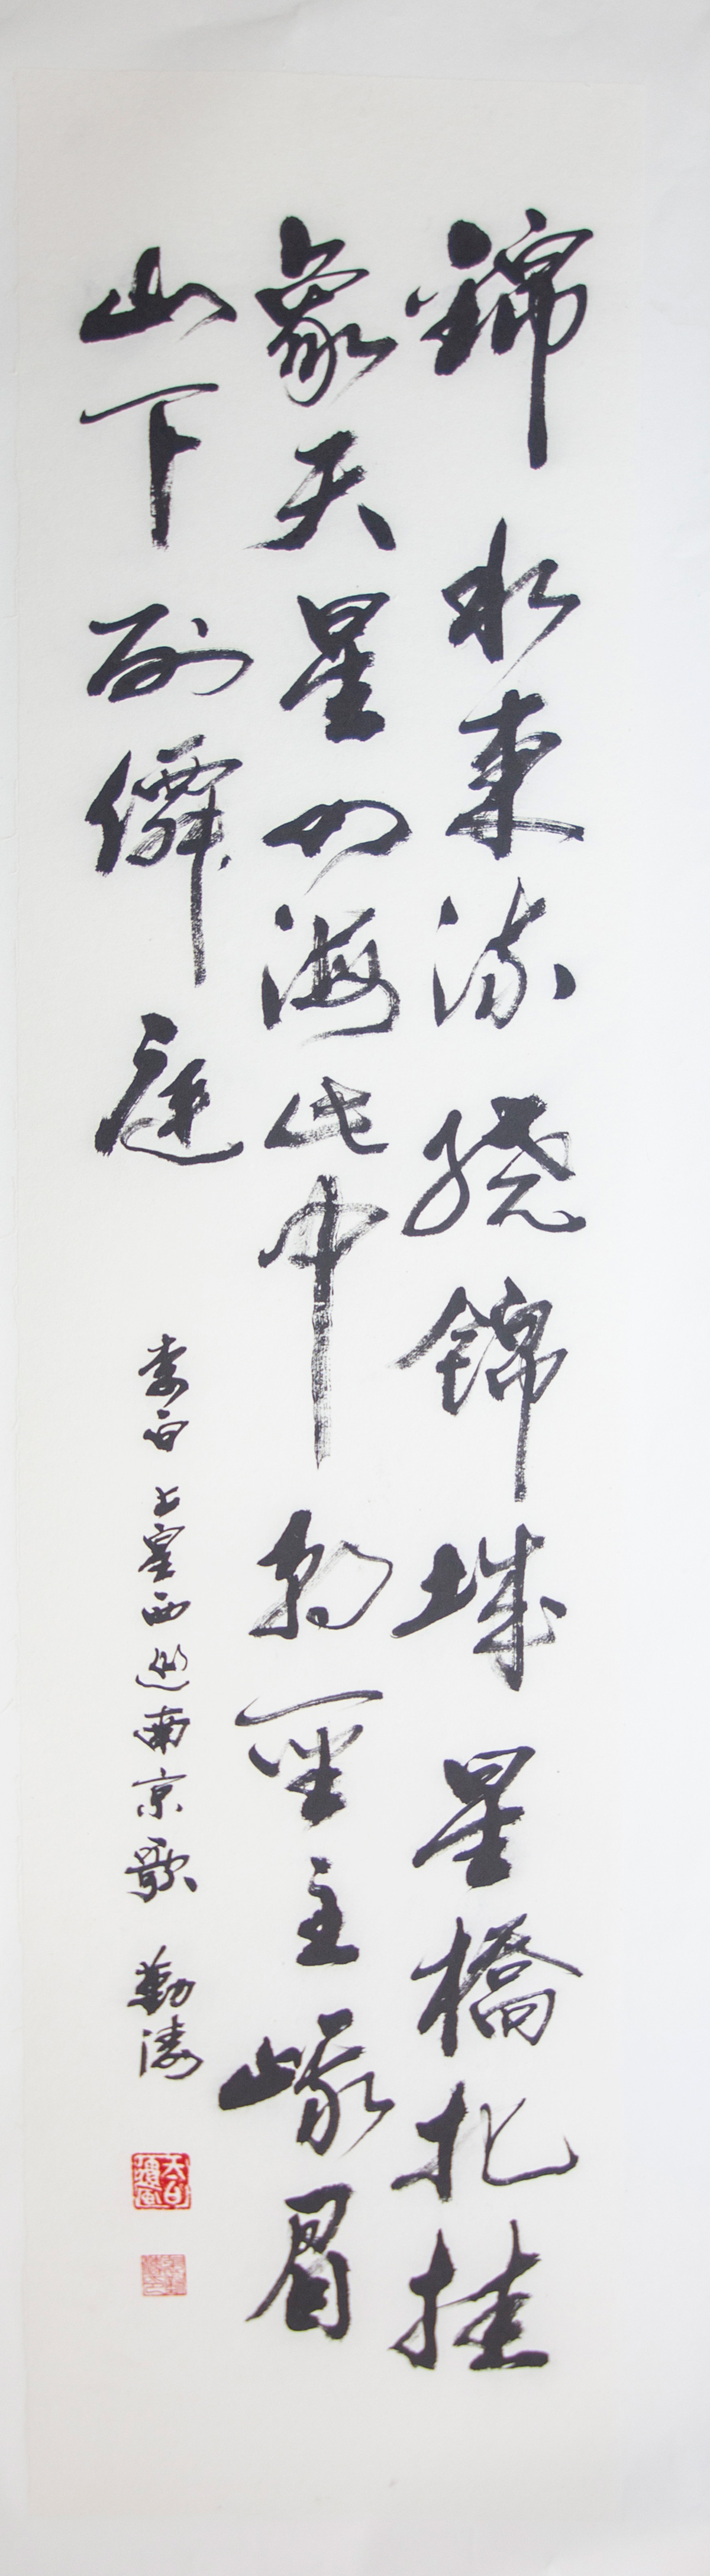 錦水東流繞錦城星橋北挂
象天星四海此中朝聖主峨眉
山下列僊庭
李白上皇西巡南京歌 勤